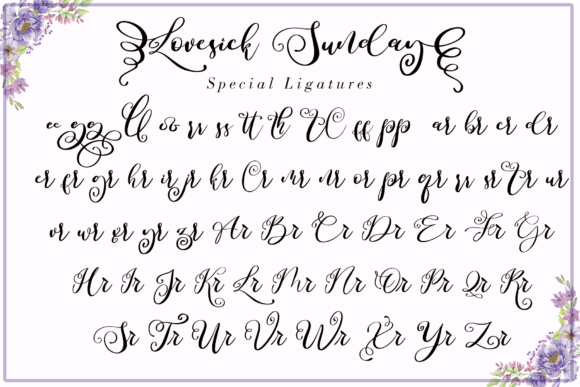 Lovesick Sunday
Special Ligatures
ee gg ll oo rr ss tt th ff pp ar br cr dr
er fr gr hr ir jr kr lr mr nr or pr qr rr sr tr ur
vr wr xr yr zr Ar Br Cr Dr Er Fr Gr
Hr Ir Jr Kr Lr Mr Nr Or Pr Qr Rr
Sr Tr Ur Vr Wr Xr Yr Zr